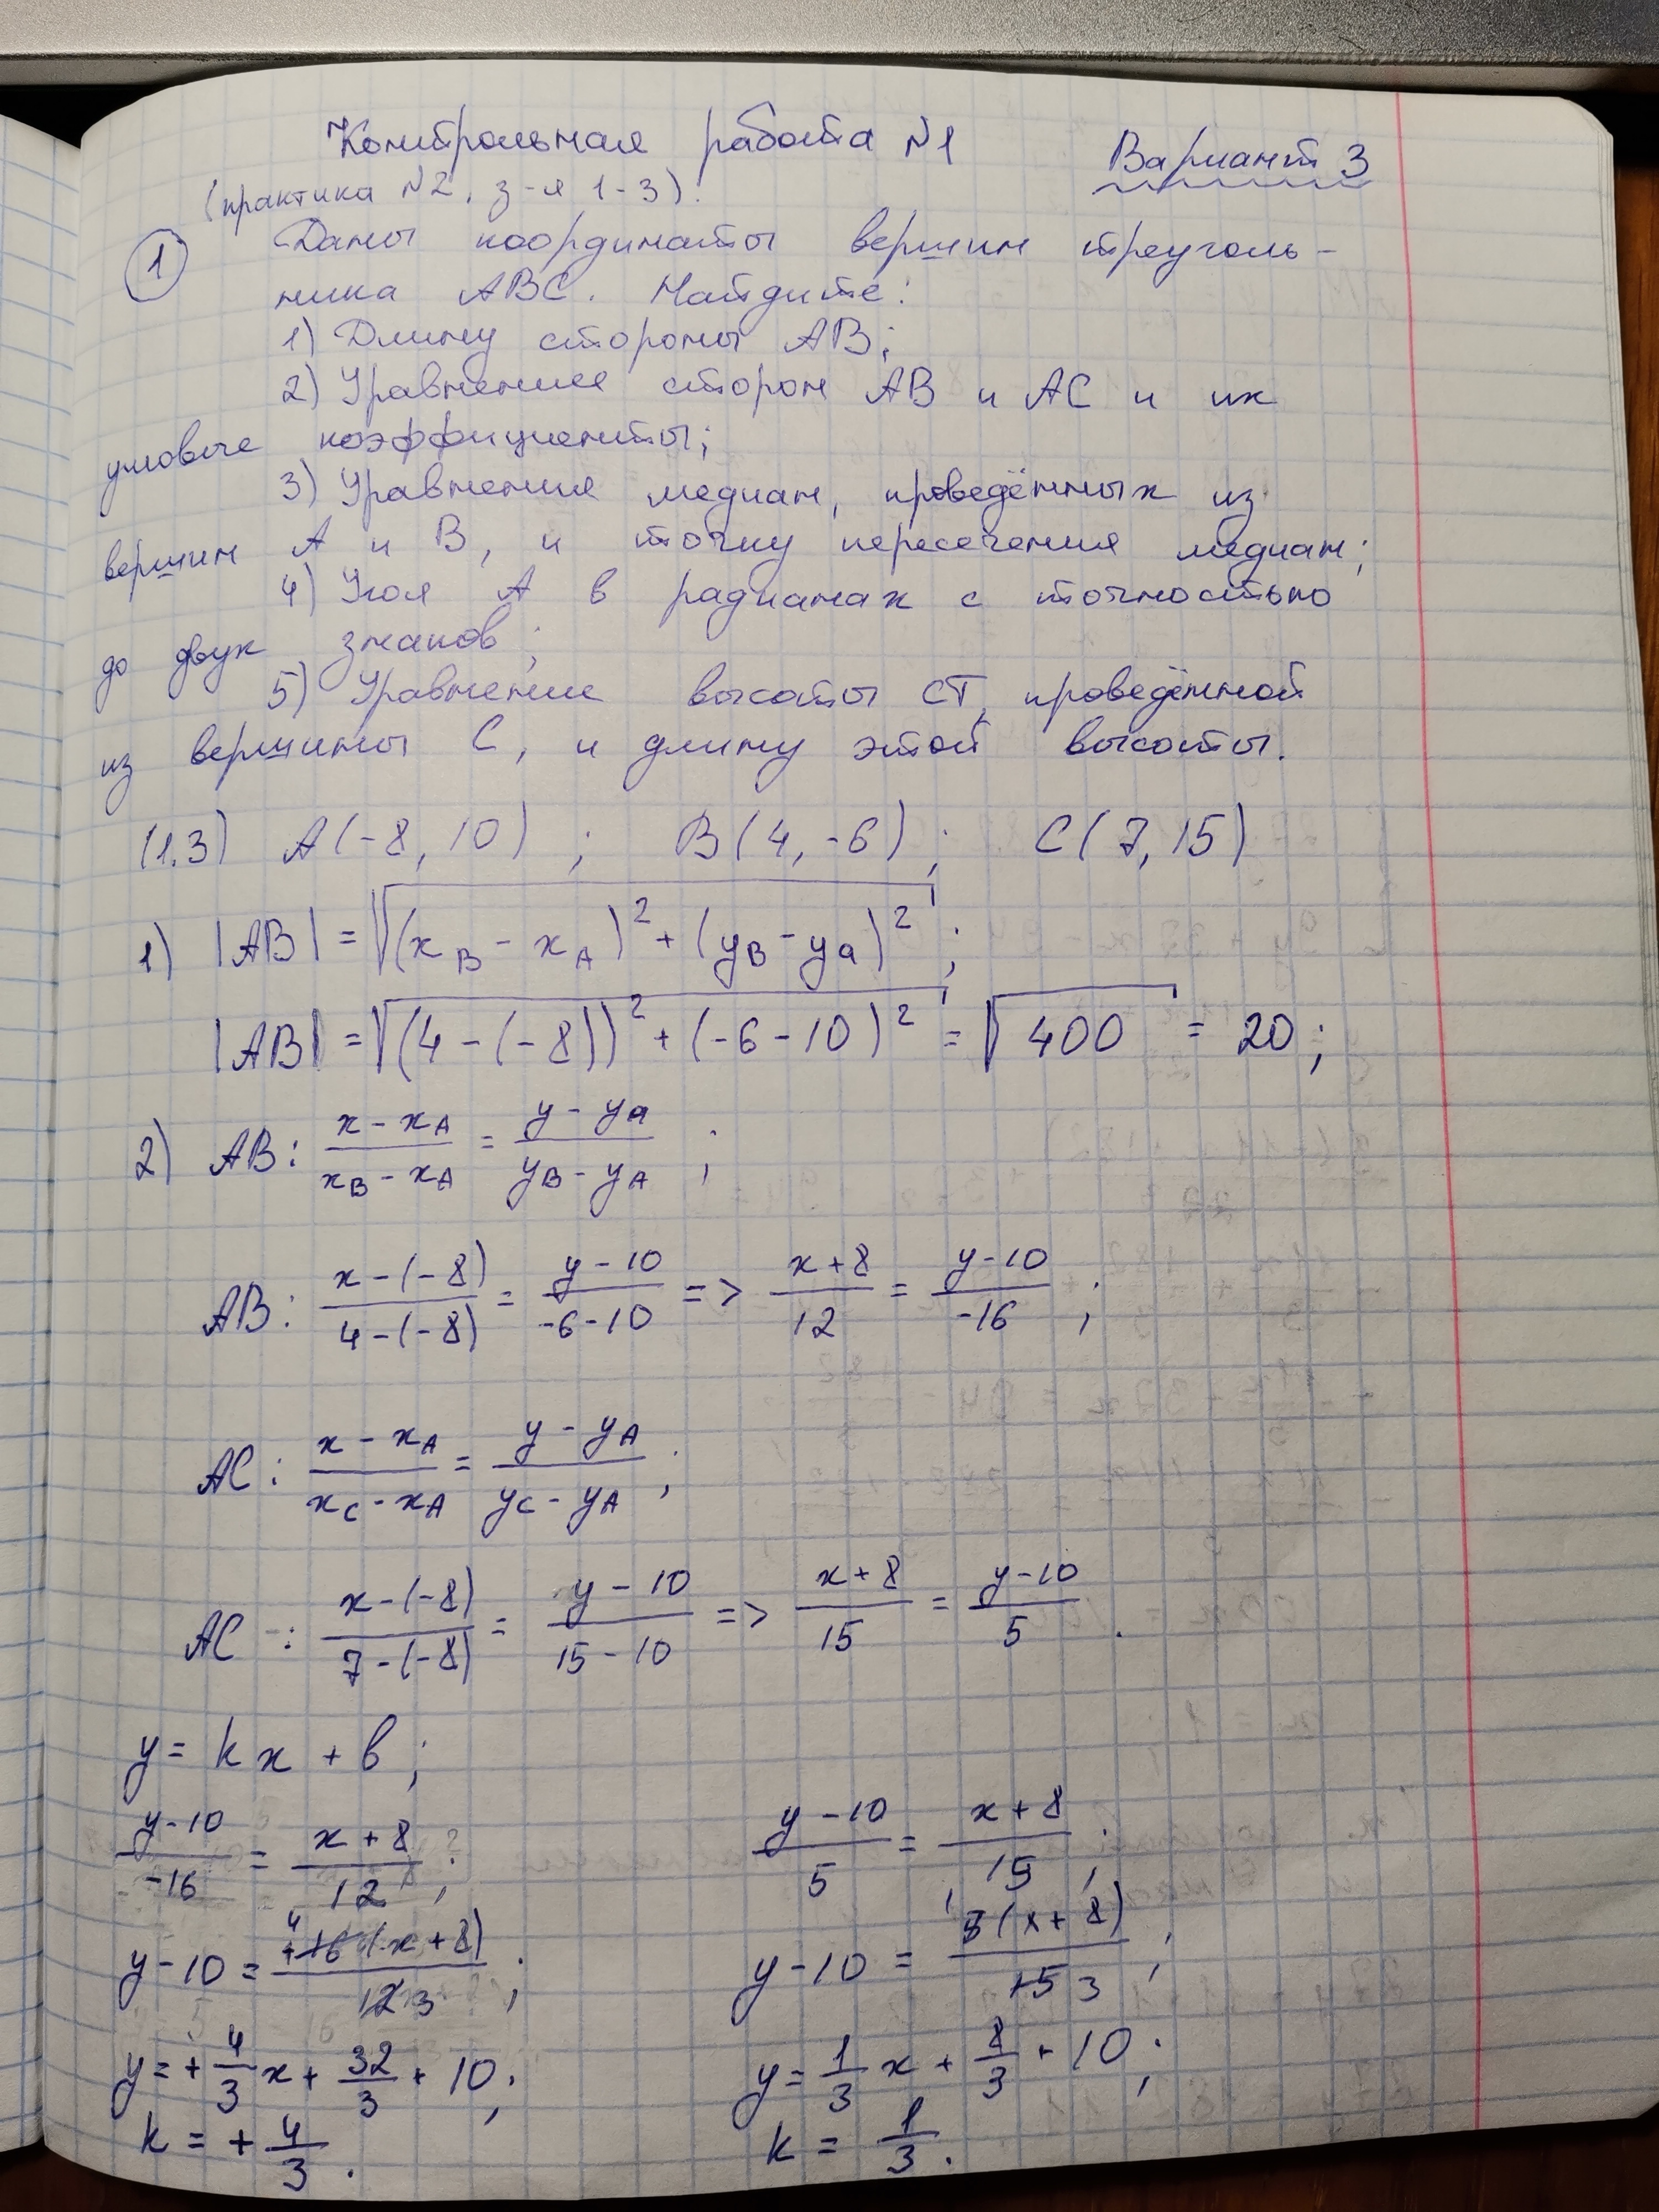 Контрольная работа №1
Вариант 3
(практика №2, з-я 1-3).
① Даны координаты вершин треуголь-
ника ABC. Найдите:
1) Длину стороны AB;
2) Уравнения сторон AB и AC и их
угловые коэффициенты;
3) Уравнения медиан, проведённых из
вершин A и B, и точку пересечения медиан;
4) Угол A в радианах с точностью
до двух знаков;
5) Уравнение высоты CT, проведённой
из вершины C, и длину этой высоты.
(1.3) A(-8, 10) ; B(4, -6) ; C(7, 15)
1) |AB| = √((x_B - x_A)² + (y_B - y_A)²) ;
|AB| = √((4 - (-8))² + (-6 - 10)²) = √400 = 20;
2) AB: (x - x_A)/(x_B - x_A) = (y - y_A)/(y_B - y_A) ;
AB: (x - (-8))/(4 - (-8)) = (y - 10)/(-6 - 10) => (x + 8)/12 = (y - 10)/-16 ;
AC: (x - x_A)/(x_C - x_A) = (y - y_A)/(y_C - y_A) ;
AC: (x - (-8))/(7 - (-8)) = (y - 10)/(15 - 10) => (x + 8)/15 = (y - 10)/5 .
y = kx + b ;
(y - 10)/-16 = (x + 8)/12 ; (y - 10)/5 = (x + 8)/15 ;
y - 10 = +4(x + 8)/3 ; y - 10 = 1(x + 8)/3 ;
y = +4/3 x + 32/3 + 10 ; y = 1/3 x + 8/3 + 10 ;
k = +4/3 . k = 1/3 .